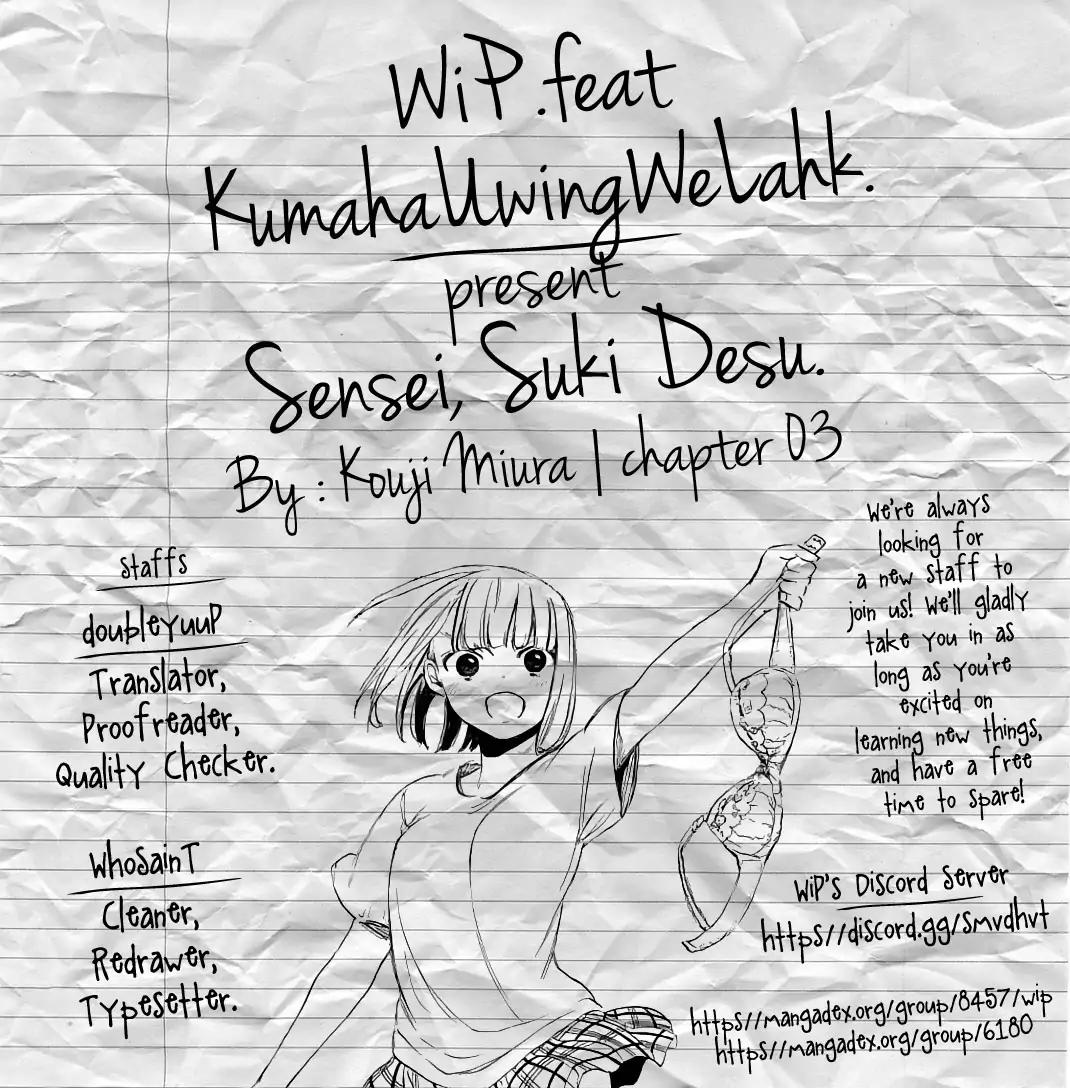 WiP .feat
KumahaUwingWeLahk.
present
Sensei, Suki Desu.
By : Kouji Miura | chapter 03
staffs
doubleYuuP
Translator,
Proofreader,
Quality Checker.
WhoSainT
Cleaner,
Redrawer,
Typesetter.
We're always
looking for
a new staff to
join us! We'll gladly
take you in as
long as you're
excited on
learning new things,
and have a free
time to spare!
WiP's Discord Server
https//discord.gg/smvdhvt
https//mangadex.org/group/8457/wip
https//mangadex.org/group/6180